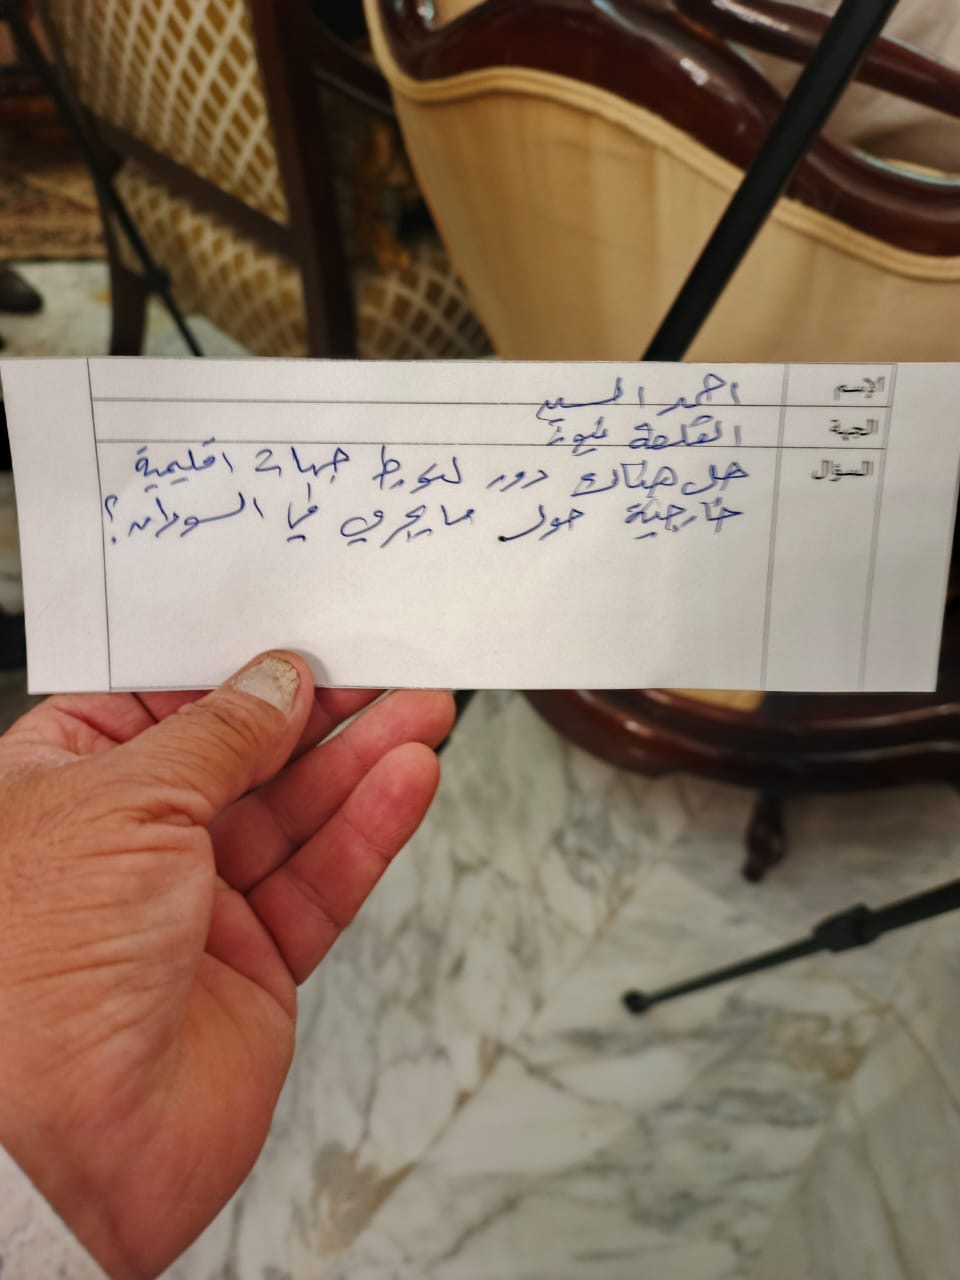 الإسم احمد السيد
الجهة القلعة نيوز
السؤال هل هناك دور لتورط جهات اقليمية
خارجية حول ما يجري في السودان؟